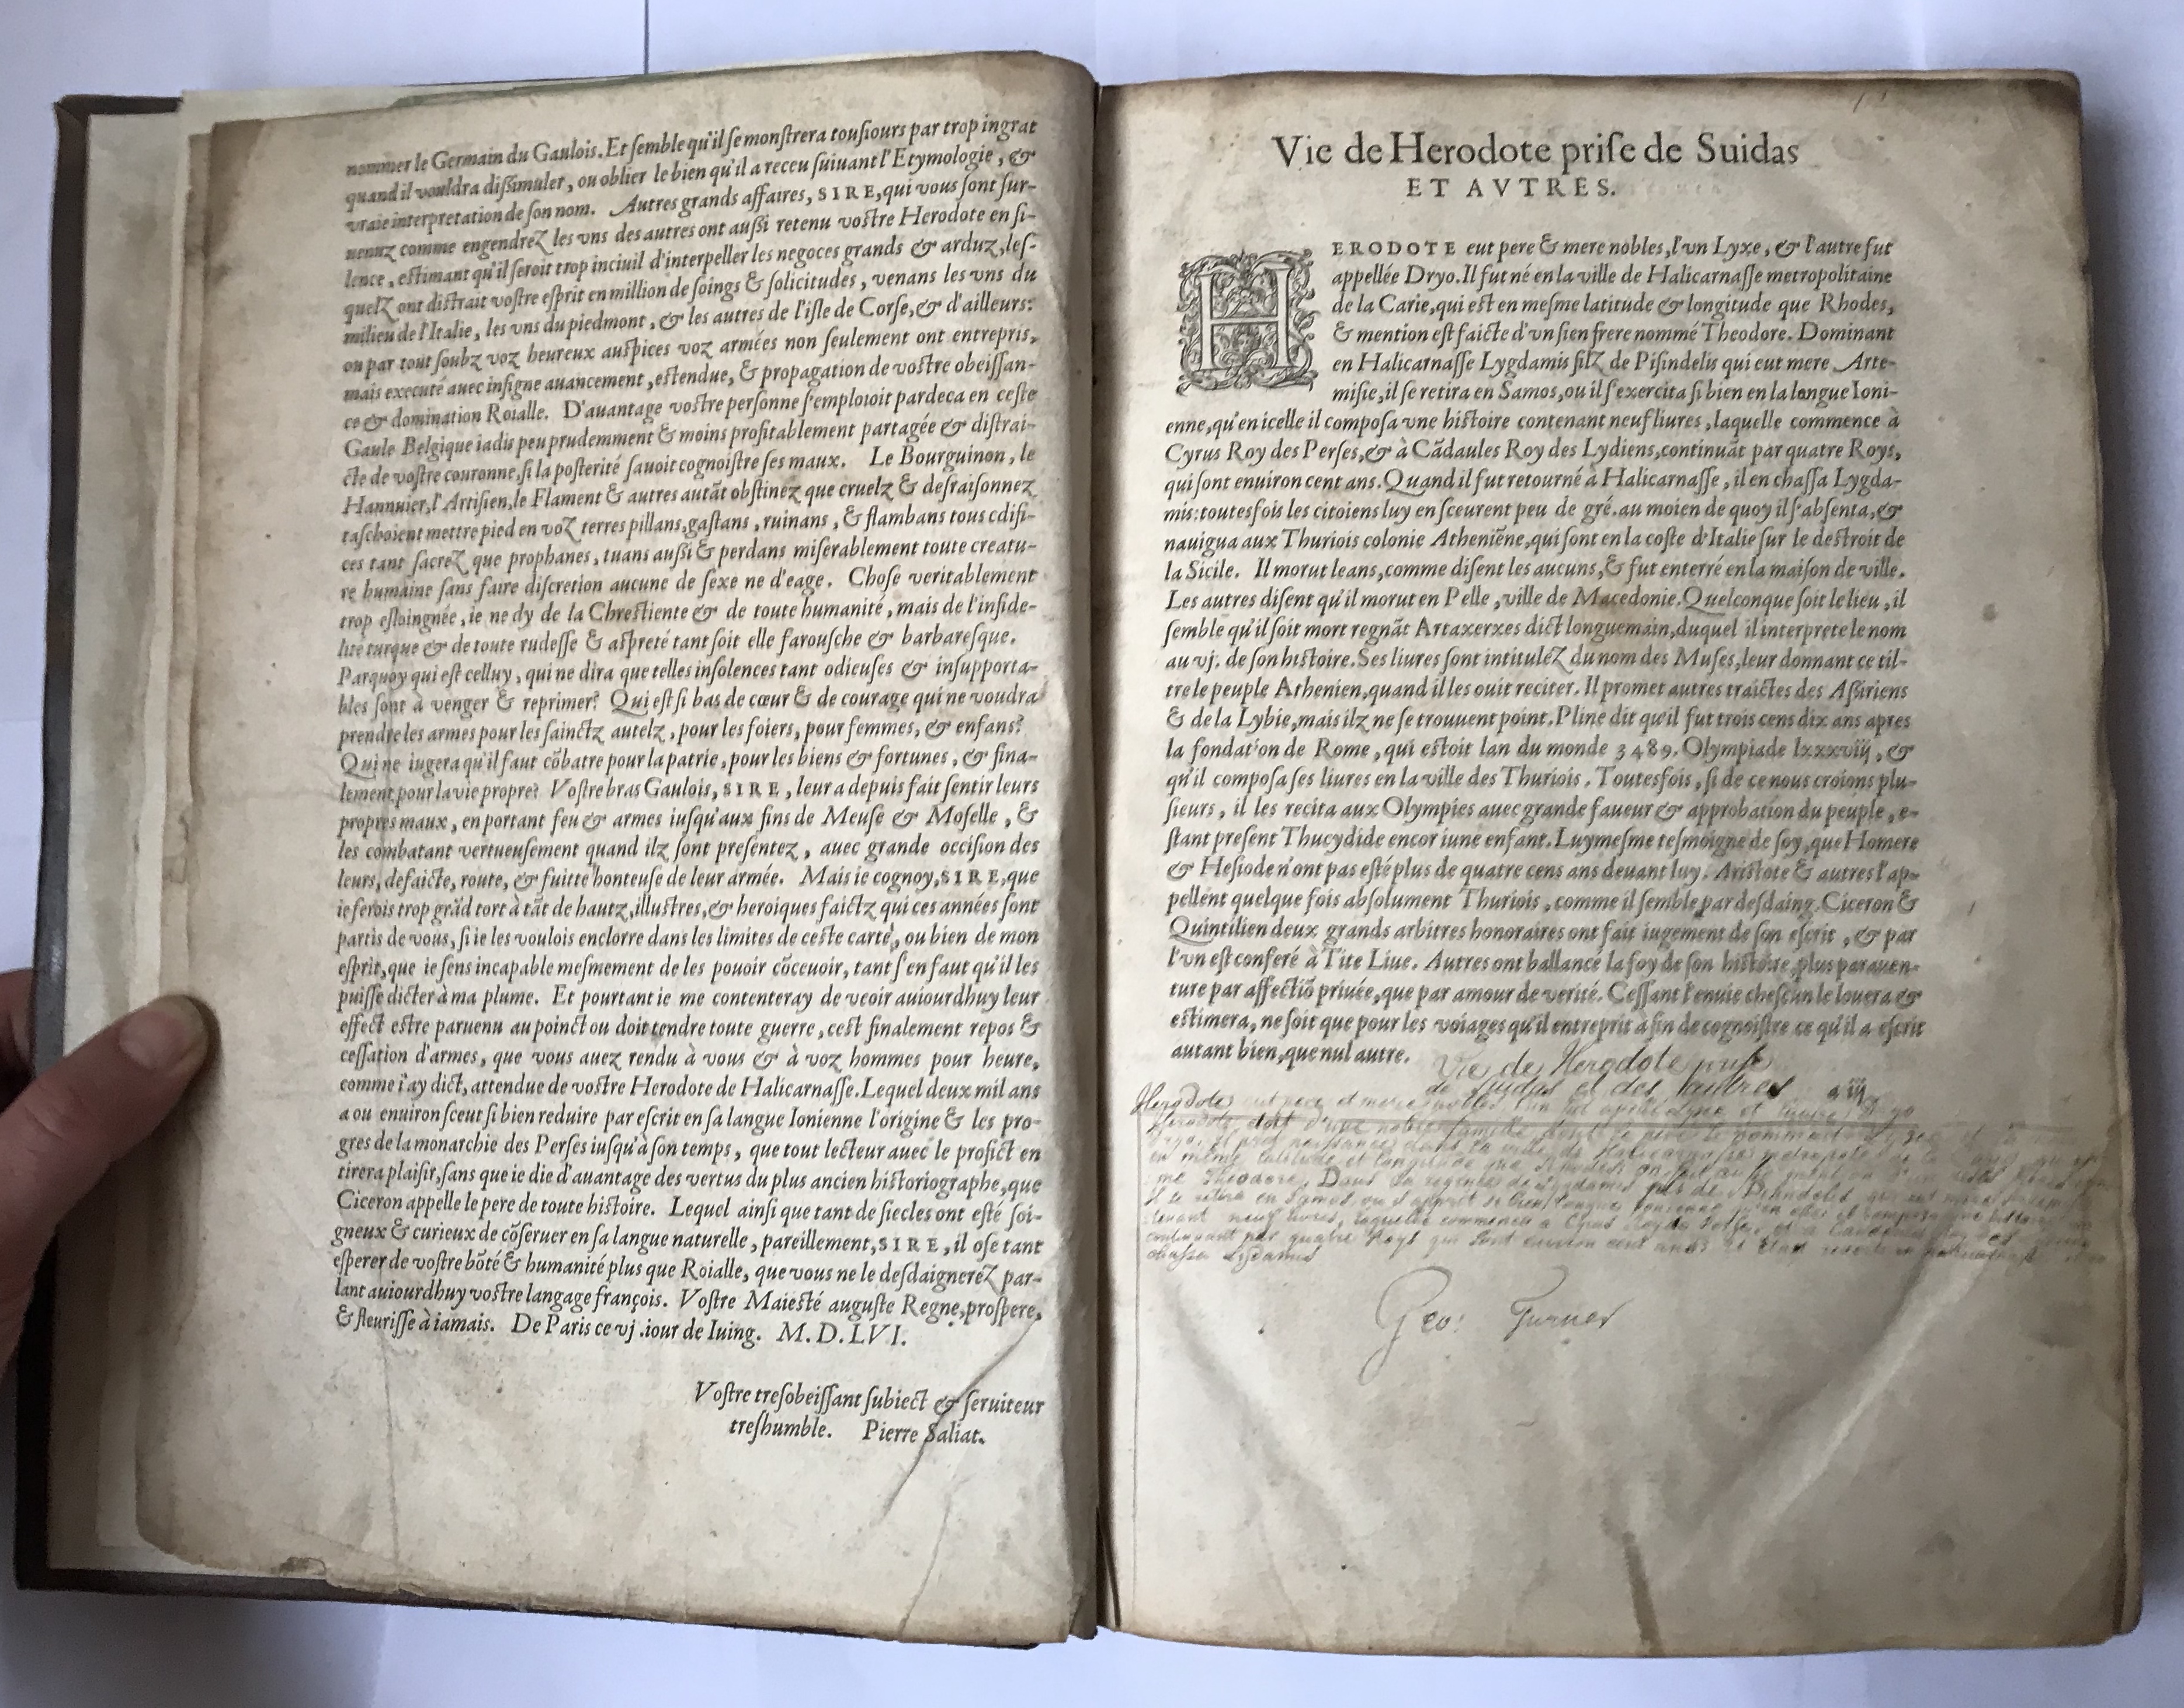 nommer le Germain du Gaulois. Et ſemble qu'il ſe monſtrera touſiours par trop ingrat
quand il vouldra diſſimuler, ou oblier le bien qu'il a receu ſuiuant l'Etymologie, &
vraie interpretation de ſon nom. Autres grands affaires, SIRE, qui vous ſont ſur-
uenuz comme engendrez les vns des autres ont auſſi retenu voſtre Herodote en ſi-
lence, eſtimant qu'il ſeroit trop inciuil d'interpeller les negoces grands & arduz, leſ-
quelz ont diſtrait voſtre eſprit en million de ſoings & ſolicitudes, venans les vns du
milieu de l'Italie, les vns du piedmont, & les autres de l'iſle de Corſe, & d'ailleurs:
ou par tout ſoubz voz heureux auſpices voz armées non ſeulement ont entrepris,
mais executé auec inſigne auancement, eſtendue, & propagation de voſtre obeiſſan-
ce & domination Roialle. D'auantage voſtre perſonne ſ'emploioit pardeca en ceſte
Gaule Belgique iadis peu prudemment & moins profitablement partagée & diſtrai-
cte de voſtre couronne, ſi la poſterité ſauoit cognoiſtre ſes maux. Le Bourguinon, le
Hannuier, l'Artiſien, le Flament & autres autāt obſtinez que cruelz & deſraiſonnez
taſchoient mettre pied en voz terres pillans, gaſtans, ruinans, & flambans tous edifi-
ces tant ſacrez que prophanes, tuans auſſi & perdans miſerablement toute creatu-
re humaine ſans faire diſcretion aucune de ſexe ne d'eage. Choſe veritablement
trop eſloingnée, ie ne dy de la Chreſtiente & de toute humanité, mais de l'infide-
lité turque & de toute rudeſſe & aſpreté tant ſoit elle farouſche & barbareſque.
Parquoy qui eſt celluy, qui ne dira que telles inſolences tant odieuſes & inſupporta-
bles ſont à venger & reprimer? Qui eſt ſi bas de cœur & de courage qui ne voudra
prendre les armes pour les ſainctz autelz, pour les foiers, pour femmes, & enfans?
Qui ne iugera qu'il faut cōbatre pour la patrie, pour les biens & fortunes, & fina-
lement pour la vie propre? Voſtre bras Gaulois, SIRE, leur a depuis fait ſentir leurs
propres maux, en portant feu & armes iuſqu'aux fins de Meuſe & Moſelle, &
les combatant vertueuſement quand ilz ſont preſentez, auec grande occiſion des
leurs, defaicte, route, & fuitte honteuſe de leur armée. Mais ie cognoy, SIRE, que
ie ferois trop grād tort à tāt de hautz, illuſtres, & heroiques faictz qui ces années ſont
partis de vous, ſi ie les voulois enclorre dans les limites de ceſte carte, ou bien de mon
eſprit, que ie ſens incapable meſmement de les pouoir cōceuoir, tant ſ'en faut qu'il les
puiſſe dicter à ma plume. Et pourtant ie me contenteray de veoir auiourdhuy leur
effect eſtre paruenu au poinct ou doit tendre toute guerre, ceſt finalement repos &
ceſſation d'armes, que vous auez rendu à vous & à voz hommes pour heure,
comme i'ay dict, attendue de voſtre Herodote de Halicarnaſſe. Lequel deux mil ans
a ou enuiron ſceut ſi bien reduire par eſcrit en ſa langue Ionienne l'origine & les pro-
gres de la monarchie des Perſes iuſqu'à ſon temps, que tout lecteur auec le profict en
tirera plaiſir, ſans que ie die d'auantage des vertus du plus ancien hiſtoriographe, que
Ciceron appelle le pere de toute hiſtoire. Lequel ainſi que tant de ſiecles ont eſté ſoi-
gneux & curieux de cōſeruer en ſa langue naturelle, pareillement, SIRE, il oſe tant
eſperer de voſtre bōté & humanité plus que Roialle, que vous ne le deſdaignerez par-
lant auiourdhuy voſtre langage françois. Voſtre Maieſté auguſte Regne, proſpere,
& fleuriſſe à iamais. De Paris ce vj .iour de Iuing. M.D.LVI.
Voſtre treſobeiſſant ſubiect & ſeruiteur
treſhumble. Pierre Saliat.
Vie de Herodote priſe de Suidas
ET AVTRES.
HERODOTE eut pere & mere nobles, l'vn Lyxe, & l'autre fut
appellée Dryo. Il fut né en la ville de Halicarnaſſe metropolitaine
de la Carie, qui eſt en meſme latitude & longitude que Rhodes,
& mention eſt faicte d'vn ſien frere nommé Theodore. Dominant
en Halicarnaſſe Lygdamis filz de Piſindelis qui eut mere Arte-
miſie, il ſe retira en Samos, ou il ſ'exercita ſi bien en la langue Ioni-
enne, qu'en icelle il compoſa vne hiſtoire contenant neuf liures, laquelle commence à
Cyrus Roy des Perſes, & à Cādaules Roy des Lydiens, continuāt par quatre Roys,
qui ſont enuiron cent ans. Quand il fut retourné à Halicarnaſſe, il en chaſſa Lygda-
mis: toutesfois les citoiens luy en ſceurent peu de gré. au moien de quoy il ſ'abſenta, &
nauigua aux Thuriois colonie Atheniēne, qui ſont en la coſte d'Italie ſur le deſtroit de
la Sicile. Il morut leans, comme diſent les aucuns, & fut enterré en la maiſon de ville.
Les autres diſent qu'il morut en Pelle, ville de Macedonie. Quelconque ſoit le lieu, il
ſemble qu'il ſoit mort regnāt Artaxerxes dict longuemain, duquel il interprete le nom
au vj. de ſon hiſtoire. Ses liures ſont intitulez du nom des Muſes, leur donnant ce til-
tre le peuple Athenien, quand il les ouit reciter. Il promet autres traictes des Aſſiriens
& de la Lybie, mais ilz ne ſe trouuent point. Pline dit qu'il fut trois cens dix ans apres
la fondation de Rome, qui eſtoit lan du monde 3489. Olympiade lxxxviij, &
qu'il compoſa ſes liures en la ville des Thuriois. Toutesfois, ſi de ce nous croions plu-
ſieurs, il les recita aux Olympies auec grande faueur & approbation du peuple, e-
ſtant preſent Thucydide encor iune enfant. Luymeſme teſmoigne de ſoy, que Homere
& Heſiode n'ont pas eſté plus de quatre cens ans deuant luy. Ariſtote & autres l'ap-
pellent quelque fois abſolument Thuriois, comme il ſemble par deſdaing. Ciceron &
Quintilien deux grands arbitres honoraires ont fait iugement de ſon eſcrit, & par
l'vn eſt conferé à Tite Liue. Autres ont ballancé la foy de ſon hiſtoire, plus parauen-
ture par affectiō priuée, que par amour de verité. Ceſſant l'enuie cheſcun le louera &
eſtimera, ne ſoit que pour les voiages qu'il entreprit à fin de cognoiſtre ce qu'il a eſcrit
autant bien, que nul autre.
Vie de Herodote prise
de Suidas et des autres
a iij
Herodote eut pere et mere nobles, l'un
Herodote étoit d'une noble famille dont le pere se nommait
en même latitude et longitude que
me Theodore. Dans la
Il se retira en Samos, ou il apprit si bien
neuf livres, laquelle commence a Cyrus
continuant par quatre Roys qui sont environ cent ans
chassa Lygdamis
Geo: Turner